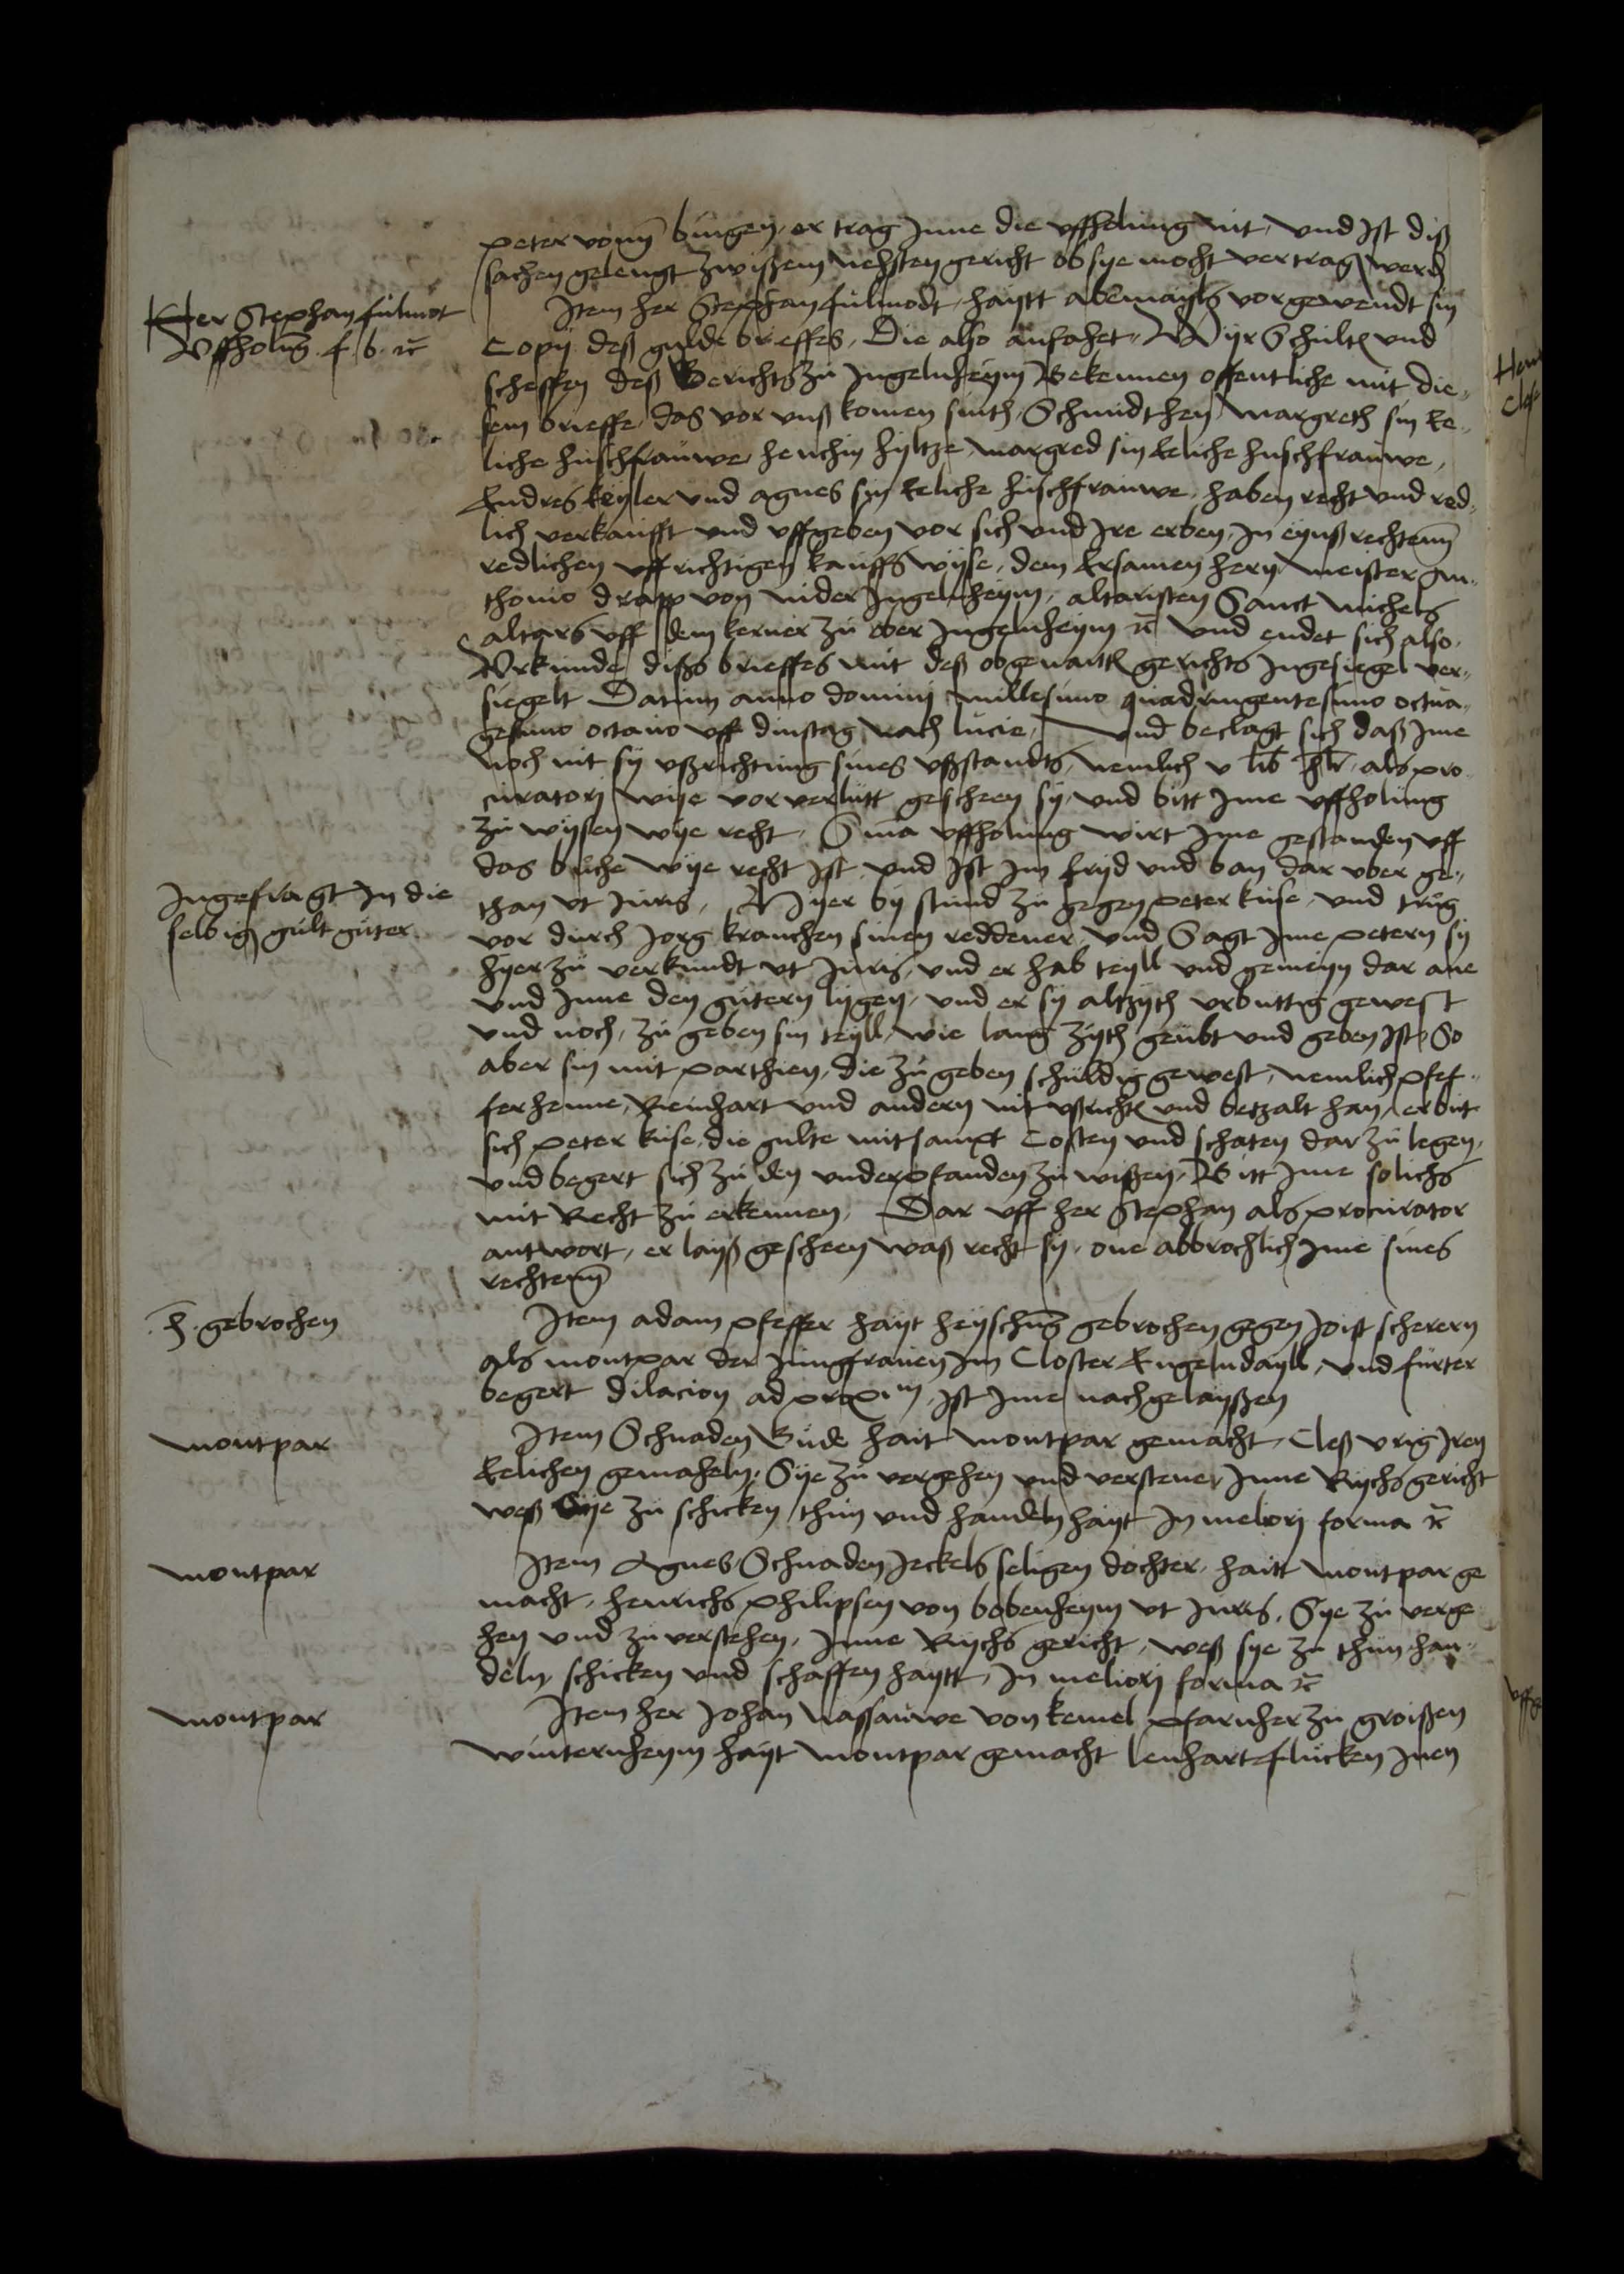 peter vonn bingen, er trag Inne die uffholung nit, und Ist diß
sachen gelengt zwißem nehsten gericht ob sye mocht vertragen werden
Her Stephan fulmot
Uffholung f. b. etc
Item her Stephan fulmodt, haytt abemayls vorgewendt sin
Copij deß gulde brieffes, Die also anfahet, Wyr Schultes und
scheffen deß Gerichts zu Ingelnheym Bekennen offentliche mit die-
sem brieffe, das vor unß komen sinth, Schmidthen, Margreth sin Ee-
liche hußfrauwe, henchin hyltze, margred sin Eeliche hußfrauwe,
Endres keyler und agnes sin Eeliche hußfrauwe, haben recht und red-
lich verkaufft und uffgeben vor sich und Ire erben, In eynß rechtenn
redlichen uffrichtigen kauffs wyse, dem Ersamen hern meister An-
thonio drapp von nider Ingelnheym, altaristen Sanct Michels
altars uff dem kerner zu ober Ingelnheym etc und endet sich also
Urkunde dißs brieffes mit deß obgenantten gerichts Ingesiegel ver-
siegelt Datum anno domini millesimo quadringentesimo octua-
gesimo octavo uff dinstag nach lucie, Und beclagt sich daß Ime
noch nit sy ußrichtung sines ußstandts, nemlich v lib hlr, als pro-
curatori wye vor verlutt gescheen sy, und bitt Ime uffholung
zu wysen wye recht, Sina uffholung wirt Ime gestanden uff
das buche wye recht Ist, und Ist Im fryd und ban dar uber ge-
Ingefragt In die
selbigen gult guter
than ut Juris, Hyer by stund zu gegen peter kuse, und trug
vor durch Jorg kranchen sinen reddener, und Sagt Ime petern sy
hyer zu verkundt ut Juris, und er hab teyll und gemeyn dar ane
und Inne den gutern lygen, und er sy altzyth urbuttig gewest
und noch, zu geben sin teyll, wie lang zyth geubt und geben Ist, So
aber sin mit parthien, die zu geben schuldig gewest, nemlich pfef-
ferhenne, Rienhart und andern nit ußrichten und betzalt han, erbut
sich peter kuse, die gulte mitsampt Costen und schaten dar zu legen,
und begert sich zu den underpfanden zu wißen, Bitt Ime solichs
mit Recht zu erkennen, Dar uff her Stephan als procurator
antwort, er layß gescheen waß recht sy, one abbrochlich Ime sines
rechtenn
h. gebrochen
Item adam pfeffer hayt heyschung gebrochen gegen Joist scherern
als montpar der Jungfrauen Im Closter Engelndayll, und furter
begert dilacion ad proximum, ist Ime nachgelayßen
montpar
Item Schnaden Bude hait montpar gemacht, Cleß Urig Iren
Eelichen gemaheln, Sye zu vergehen und versteuer Inne Rychsgericht
weß Sye zu schicken thun und handeln hayt In meliori forma etc
montpar
Item Agnes, Schnaden Jeckels seligen dochter, haitt montpar ge
macht, henrichs philipsen von bobenheym ut Juris, Sye zu verge
hen und zu verstehen, Inne Rychs gericht, weß sye zu thun, han-
deln, schicken und schaffen haytt, In meliori forma etc
montpar
Item her Johan Nassauwe von kemel pfarnher zu groißen
winternheym hayt montpar gemacht lenhart flucken Inen